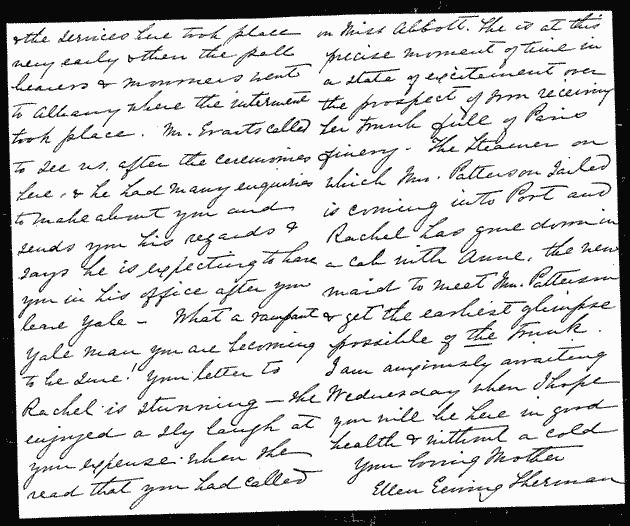 & the services here took place
very early & then the pall
bearers & mourners went
to Albany where the interment
took place. Mr. Evarts called
to see us, after the ceremonies
here, & he had many enquiries
to make about you and
sends you his regards &
says he is expecting to have
you in his office after you
leave Yale – What a rampant
Yale man you are becoming
to be sure! Your letter to
Rachel is stunning – she
enjoyed a sly laugh at
your expense when she
read that you had called
on Miss Abbott. She is at this
precise moment of time in
a state of excitement over
the prospect of soon receiving
her trunk full of Paris
finery. The Steamer on
which Mrs. Patterson sailed
is coming into Port and
Rachel has gone down in
a cab with Anne, the new
maid to meet Mrs. Patterson
& get the earliest glimpse
possible of the trunk.
I am anxiously awaiting
Wednesday when I hope
you will be here in good
health & without a cold
Your loving Mother
Ellen Ewing Sherman